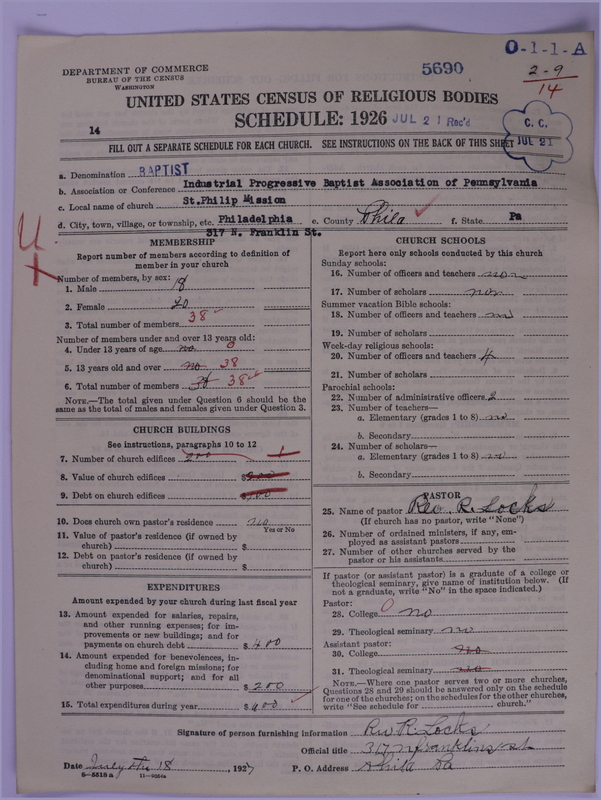 DEPARTMENT OF COMMERCE
BUREAU OF THE CENSUS
WASHINGTON
5690
O-1-1-A
2-9
14
UNITED STATES CENSUS OF RELIGIOUS BODIES
SCHEDULE: 1926
JUL 21 Rec'd
C. C.
JUL 21
14
FILL OUT A SEPARATE SCHEDULE FOR EACH CHURCH. SEE INSTRUCTIONS ON THE BACK OF THIS SHEET
a. Denomination BAPTIST
b. Association or Conference Industrial Progressive Baptist Association of Pennsylvania
c. Local name of church St.Philip Mission
d. City, town, village, or township, etc. Philadelphia e. County Phila f. State Pa
317 N. Franklin St.
MEMBERSHIP
Report number of members according to definition of
member in your church
Number of members, by sex:
1. Male 18
2. Female 20
3. Total number of members 38
Number of members under and over 13 years old:
4. Under 13 years of age no 0
5. 13 years old and over no 38
6. Total number of members 38 38
NOTE.—The total given under Question 6 should be
the same as the total of males and females given under Question 3.
CHURCH BUILDINGS
See instructions, paragraphs 10 to 12
7. Number of church edifices 200 1
8. Value of church edifices $
9. Debt on church edifices $
10. Does church own pastor's residence no
Yes or No
11. Value of pastor's residence (if owned by
church) $
12. Debt on pastor's residence (if owned by
church) $
EXPENDITURES
Amount expended by your church during last fiscal year
13. Amount expended for salaries, repairs,
and other running expenses; for im-
provements or new buildings; and for
payments on church debt $ 400
14. Amount expended for benevolences, in-
cluding home and foreign missions; for
denominational support; and for all
other purposes $ 200
15. Total expenditures during year $ 400
CHURCH SCHOOLS
Report here only schools conducted by this church
Sunday schools:
16. Number of officers and teachers non
17. Number of scholars non
Summer vacation Bible schools:
18. Number of officers and teachers
19. Number of scholars
Week-day religious schools:
20. Number of officers and teachers 4
21. Number of scholars
Parochial schools:
22. Number of administrative officers 2
23. Number of teachers—
a. Elementary (grades 1 to 8) no
b. Secondary
24. Number of scholars—
a. Elementary (grades 1 to 8)
b. Secondary
PASTOR
25. Name of pastor Rev. R. Locks
(If church has no pastor, write "None")
26. Number of ordained ministers, if any, em-
ployed as assistant pastors
27. Number of other churches served by the
pastor or his assistants
If pastor (or assistant pastor) is a graduate of a college or
theological seminary, give name of institution below. (If
not a graduate, write "No" in the space indicated.)
Pastor:
28. College 0 no
29. Theological seminary no
Assistant pastor:
30. College no
31. Theological seminary no
NOTE.—Where one pastor serves two or more churches,
Questions 28 and 29 should be answered only on the schedule
for one of the churches; on the schedules for the other churches,
write "See schedule for church."
Signature of person furnishing information Rev R. Locks
Official title 317 N franklins st
Date July the 18, 1927 P. O. Address Phila Pa
6—5518 a 11—9064a